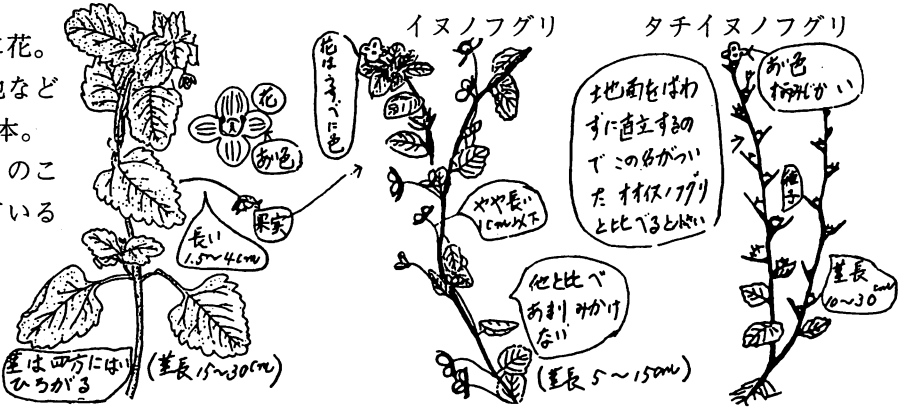 花。
など
本。
のこ
ている
花
あい色
長い
1.5〜4cm
果実
茎は四方にはい
ひろがる
(茎長15〜30cm)
イヌノフグリ
花はうすべに色
やや長い
1cm以下
他と比べ
あまりみかけ
ない
(茎長5〜15cm)
タチイヌノフグリ
地面をはわ
ずに直立するの
でこの名がつい
た オオイヌノフグリ
と比べると
あい色
種子
茎長
10〜30cm